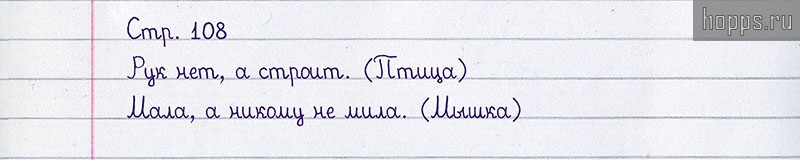 hopps.ru
Стр. 108
Рук нет, а строит. (Птица)
Мала, а никому не мила. (Мышка)